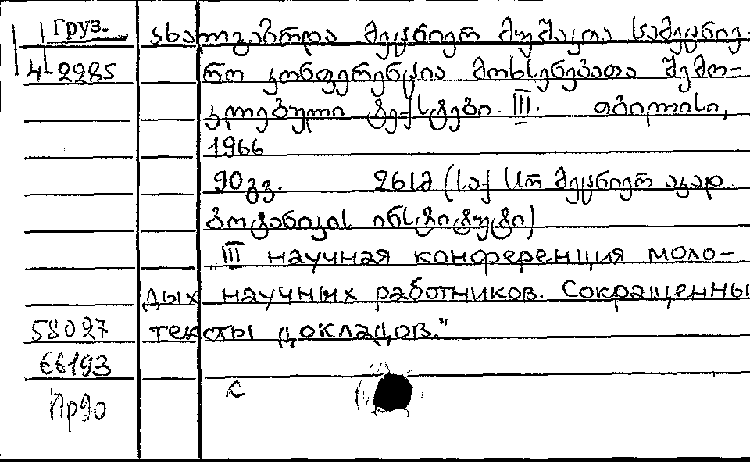 Груз.
ახალგაზრდა მეცნიერ მუშაკთა სამეცნიე-
4-2285
რო კონფერენცია მოხსენებათა შემო-
კლებული ტექსტები. III. თბილისი,
1966
90 გვ. 26სმ (საქ სსრ მეცნიერ აკად.
ბოტანიკის ინსტიტუტი)
III научная конференция моло-
дых научных работников. Сокращенны
58027
тексты докладов."
66193
Пр90
с